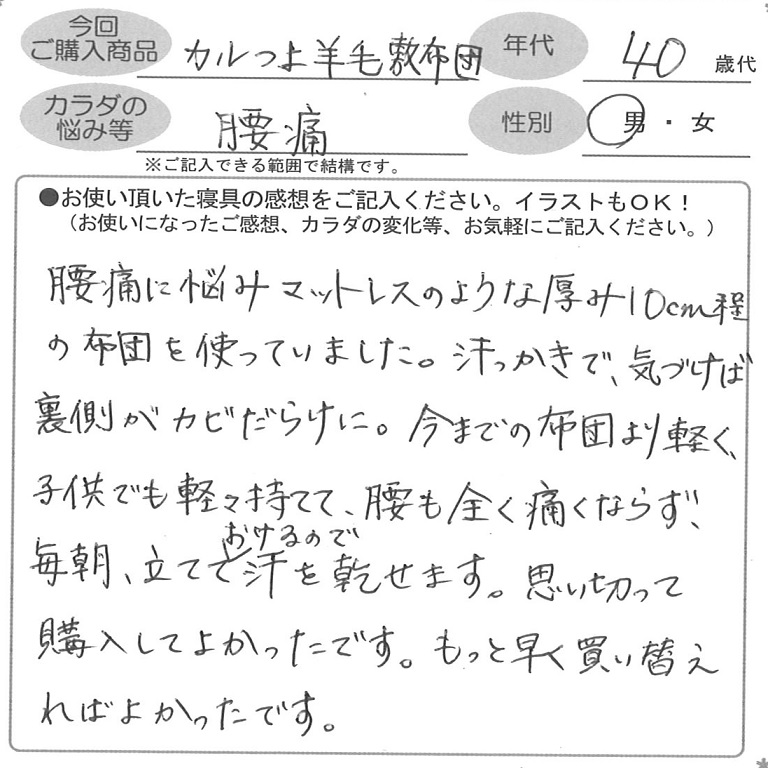 今回
ご購入商品 カルつよ羊毛敷布団 年代 40 歳代
カラダの
悩み等 腰痛 性別 男・女
※ご記入できる範囲で結構です。
●お使い頂いた寝具の感想をご記入ください。イラストもOK！
（お使いになったご感想、カラダの変化等、お気軽にご記入ください。）
腰痛に悩みマットレスのような厚み10cm程
の布団を使っていました。汗っかきで、気づけば
裏側がカビだらけに。今までの布団より軽く、
子供でも軽々持てて、腰も全く痛くならず、
おけるので
毎朝、立てて汗を乾せます。思い切って
購入してよかったです。もっと早く買い替え
ればよかったです。